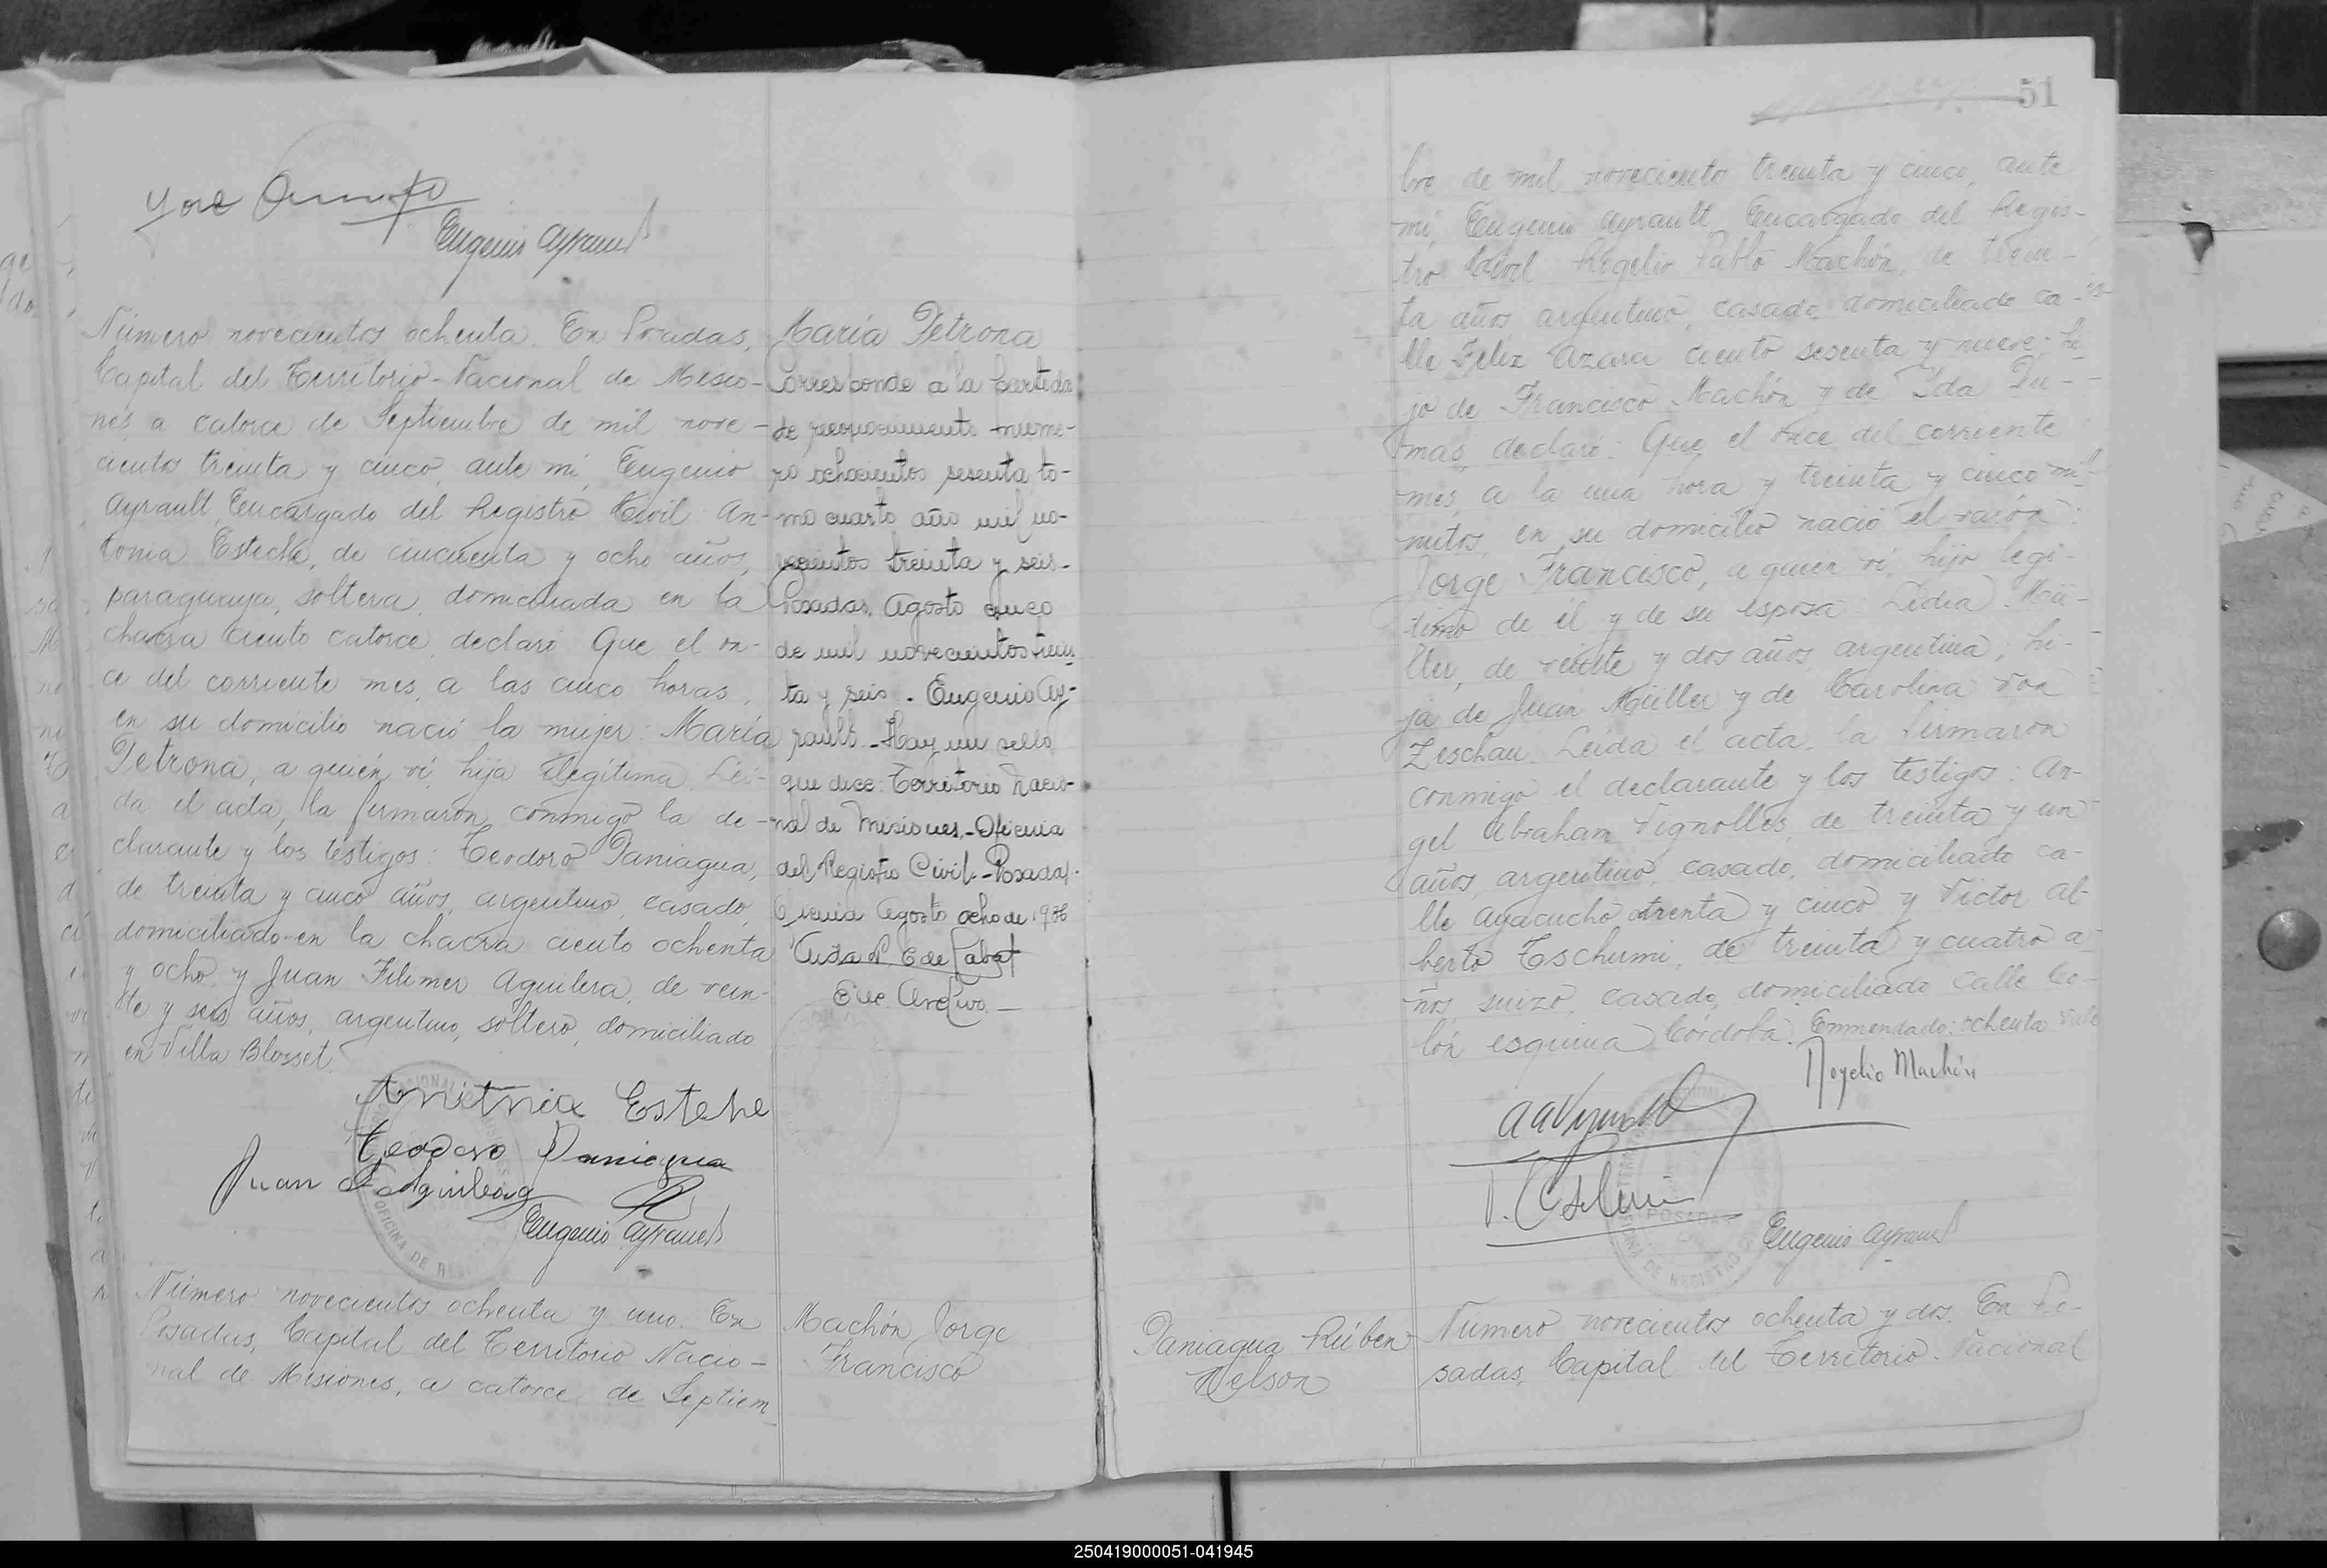 José
Eugenio Ayrault
Número novecientos ochenta. En Posadas,
Capital del Territorio Nacional de Misio-
nes, a catorce de Septiembre de mil nove-
cientos treinta y cinco, ante mí, Eugenio
Ayrault, Encargado del Registro Civil An-
tonia Esteche, de cincuenta y ocho años,
paraguaya, soltera, domiciliada en la
chacra ciento catorce, declaró: Que el on-
ce del corriente mes, a las cinco horas,
en su domicilio nació la mujer: María
Petrona, a quién ví, hija ilegítima. Leí-
da el acta, la firmaron conmigo la de-
clarante y los testigos: Teodoro Paniagua,
de treinta y cinco años, argentino, casado,
domiciliado en la chacra ciento ochenta
y ocho, y Juan Filimer Aguilera, de vein-
te y seis años, argentino, soltero, domiciliado
en Villa Blosset.
María Petrona
Corresponde a la partida
de reconocimiento núme-
ro ochocientos sesenta to-
mo cuarto año mil no-
vecientos treinta y seis.-
Posadas, Agosto cinco
de mil novecientos trein-
ta y seis. - Eugenio Ay-
rault. - Hay un sello
que dice: Territorio Nacio-
nal de Misiones.- Oficina
del Registro Civil.- Posadas.-
Agosto ocho de 1936
Antonia Esteche
Teodoro Paniagua
Juan F Aguilera
Eugenio Ayrault
Número novecientos ochenta y uno. En
Posadas, Capital del Territorio Nacio-
nal de Misiones, a catorce de Septiem
Machón Jorge
Francisco
51
bre de mil novecientos treinta y cinco, ante
mí, Eugenio Ayrault, Encargado del Regis-
tro Civil Rogelio Pablo Machón, de trein-
ta años, argentino, casado, domiciliado ca-
lle Felix Azara ciento sesenta y nueve; hi-
jo de Francisco Machón y de Ida Du-
mas, declaró: Que el once del corriente
mes, a la una hora y treinta y cinco mi-
nutos, en su domicilio nació el varón:
Jorge Francisco, a quien ví, hijo legí-
timo de él y de su esposa Lidia Mü-
ller, de veinte y dos años, argentina; hi-
ja de Juan Müller y de Carolina von
Zeschau. Leída el acta, la firmaron
conmigo el declarante y los testigos: An-
gel Abraham Vignolles, de treinta y un
años, argentino, casado, domiciliado ca-
lle Ayacucho ochenta y cinco y Victor Al-
berto Tschumi, de treinta y cuatro a-
ños, suizo, casado, domiciliado calle Co-
lón esquina Córdoba. Enmendado: ochenta vale
Rogelio Machón
Eugenio Ayrault
Paniagua Rúben
Nelson
Número novecientos ochenta y dos. En Po-
sadas, Capital del Territorio Nacional
250419000051-041945